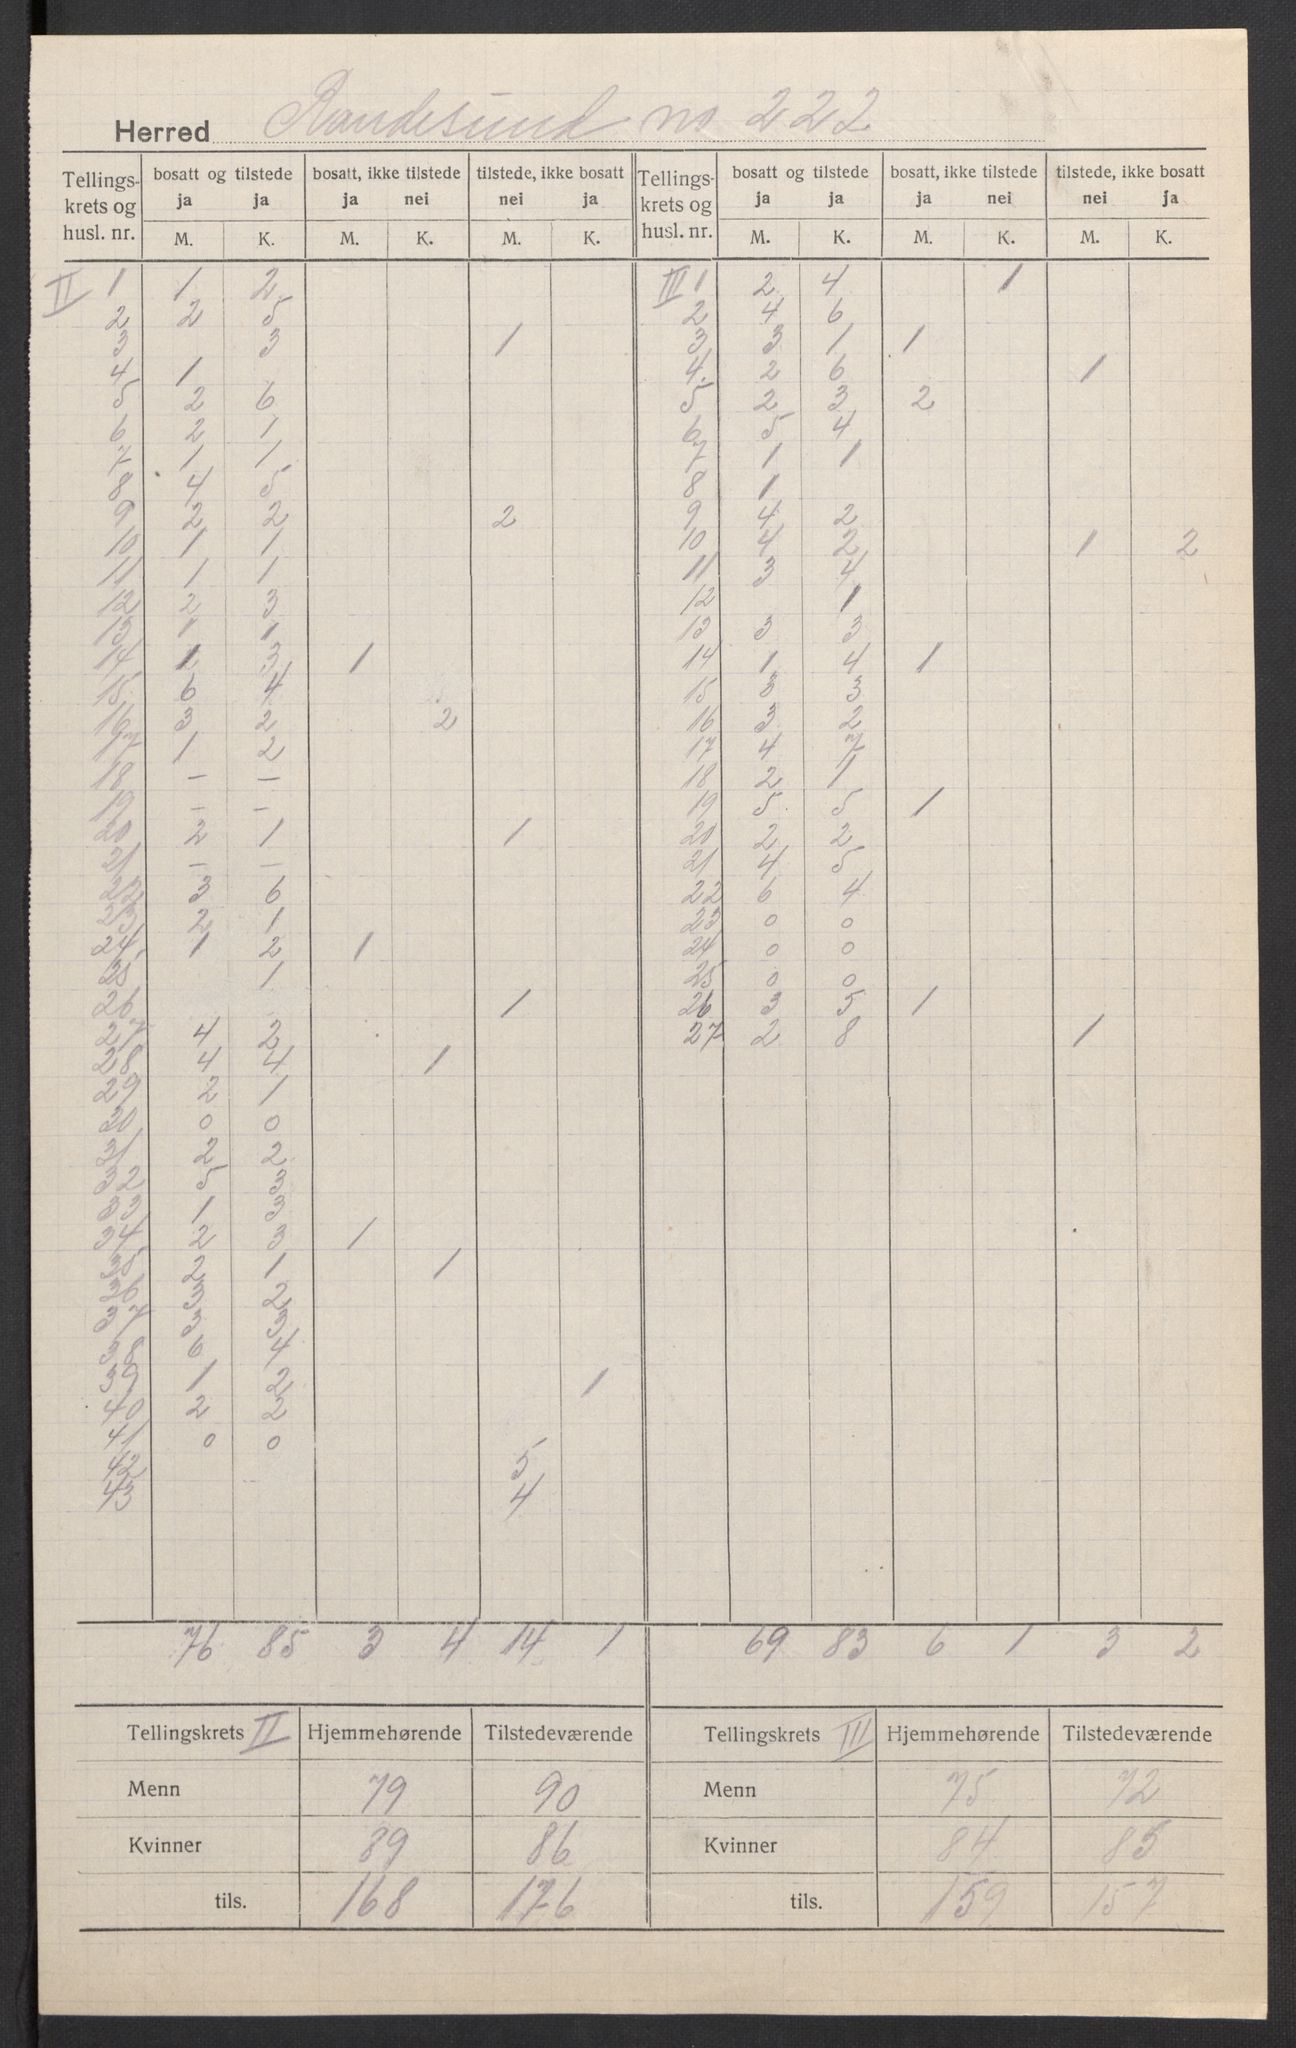 Herred Randesund no 222
Tellings-krets og husl. nr. | bosatt og tilstede ja ja | bosatt, ikke tilstede ja nei | tilstede, ikke bosatt nei ja | Tellings-krets og husl. nr. | bosatt og tilstede ja ja | bosatt, ikke tilstede ja nei | tilstede, ikke bosatt nei ja
M. K. M. K. M. K. M. K. M. K. M. K.
II 1 1 2 III 1 2 4 1
2 2 5 2 4 6
3 3 1 3 3 1 1
4 1 4. 2 6 1
5 2 6 5 2 3 2
6 2 1 6 5 4
7 1 1 7 1 1
8 4 5 8 1
9 2 2 2 9 4 2
10 1 1 10 4 2 1 2
11 1 1 11 3 4
12 2 3 12 1
13 1 1 13 3 3
14 1 3 1 14 1 4 1
15 6 4 15 3 3
16 3 2 2 16 3 2
17 1 2 17 4 7
18 - - 18 2 1
19 - - 19 5 5 1
20 2 1 1 20 2 2
21 - - 21 4 5
22 3 6 22 6 4
23 2 1 23 0 0
24 1 2 1 24 0 0
25 1 25 0 0
26 1 26 3 5 1
27 4 2 27 2 8 1
28 4 4 1
29 2 1
30 0 0
31 2 2
32 5 3
33 1 3
34 2 3 1
35 2 1 1
36 3 2
37 3 3
38 6 4
39 1 2 1
40 2 2
41 0 0
42 5
43 4
76 85 3 4 14 1 69 83 6 1 3 2
Tellingskrets II Hjemmehørende Tilstedeværende Tellingskrets III Hjemmehørende Tilstedeværende
Menn 79 90 Menn 75 72
Kvinner 89 86 Kvinner 84 85
tils. 168 176 tils. 159 157